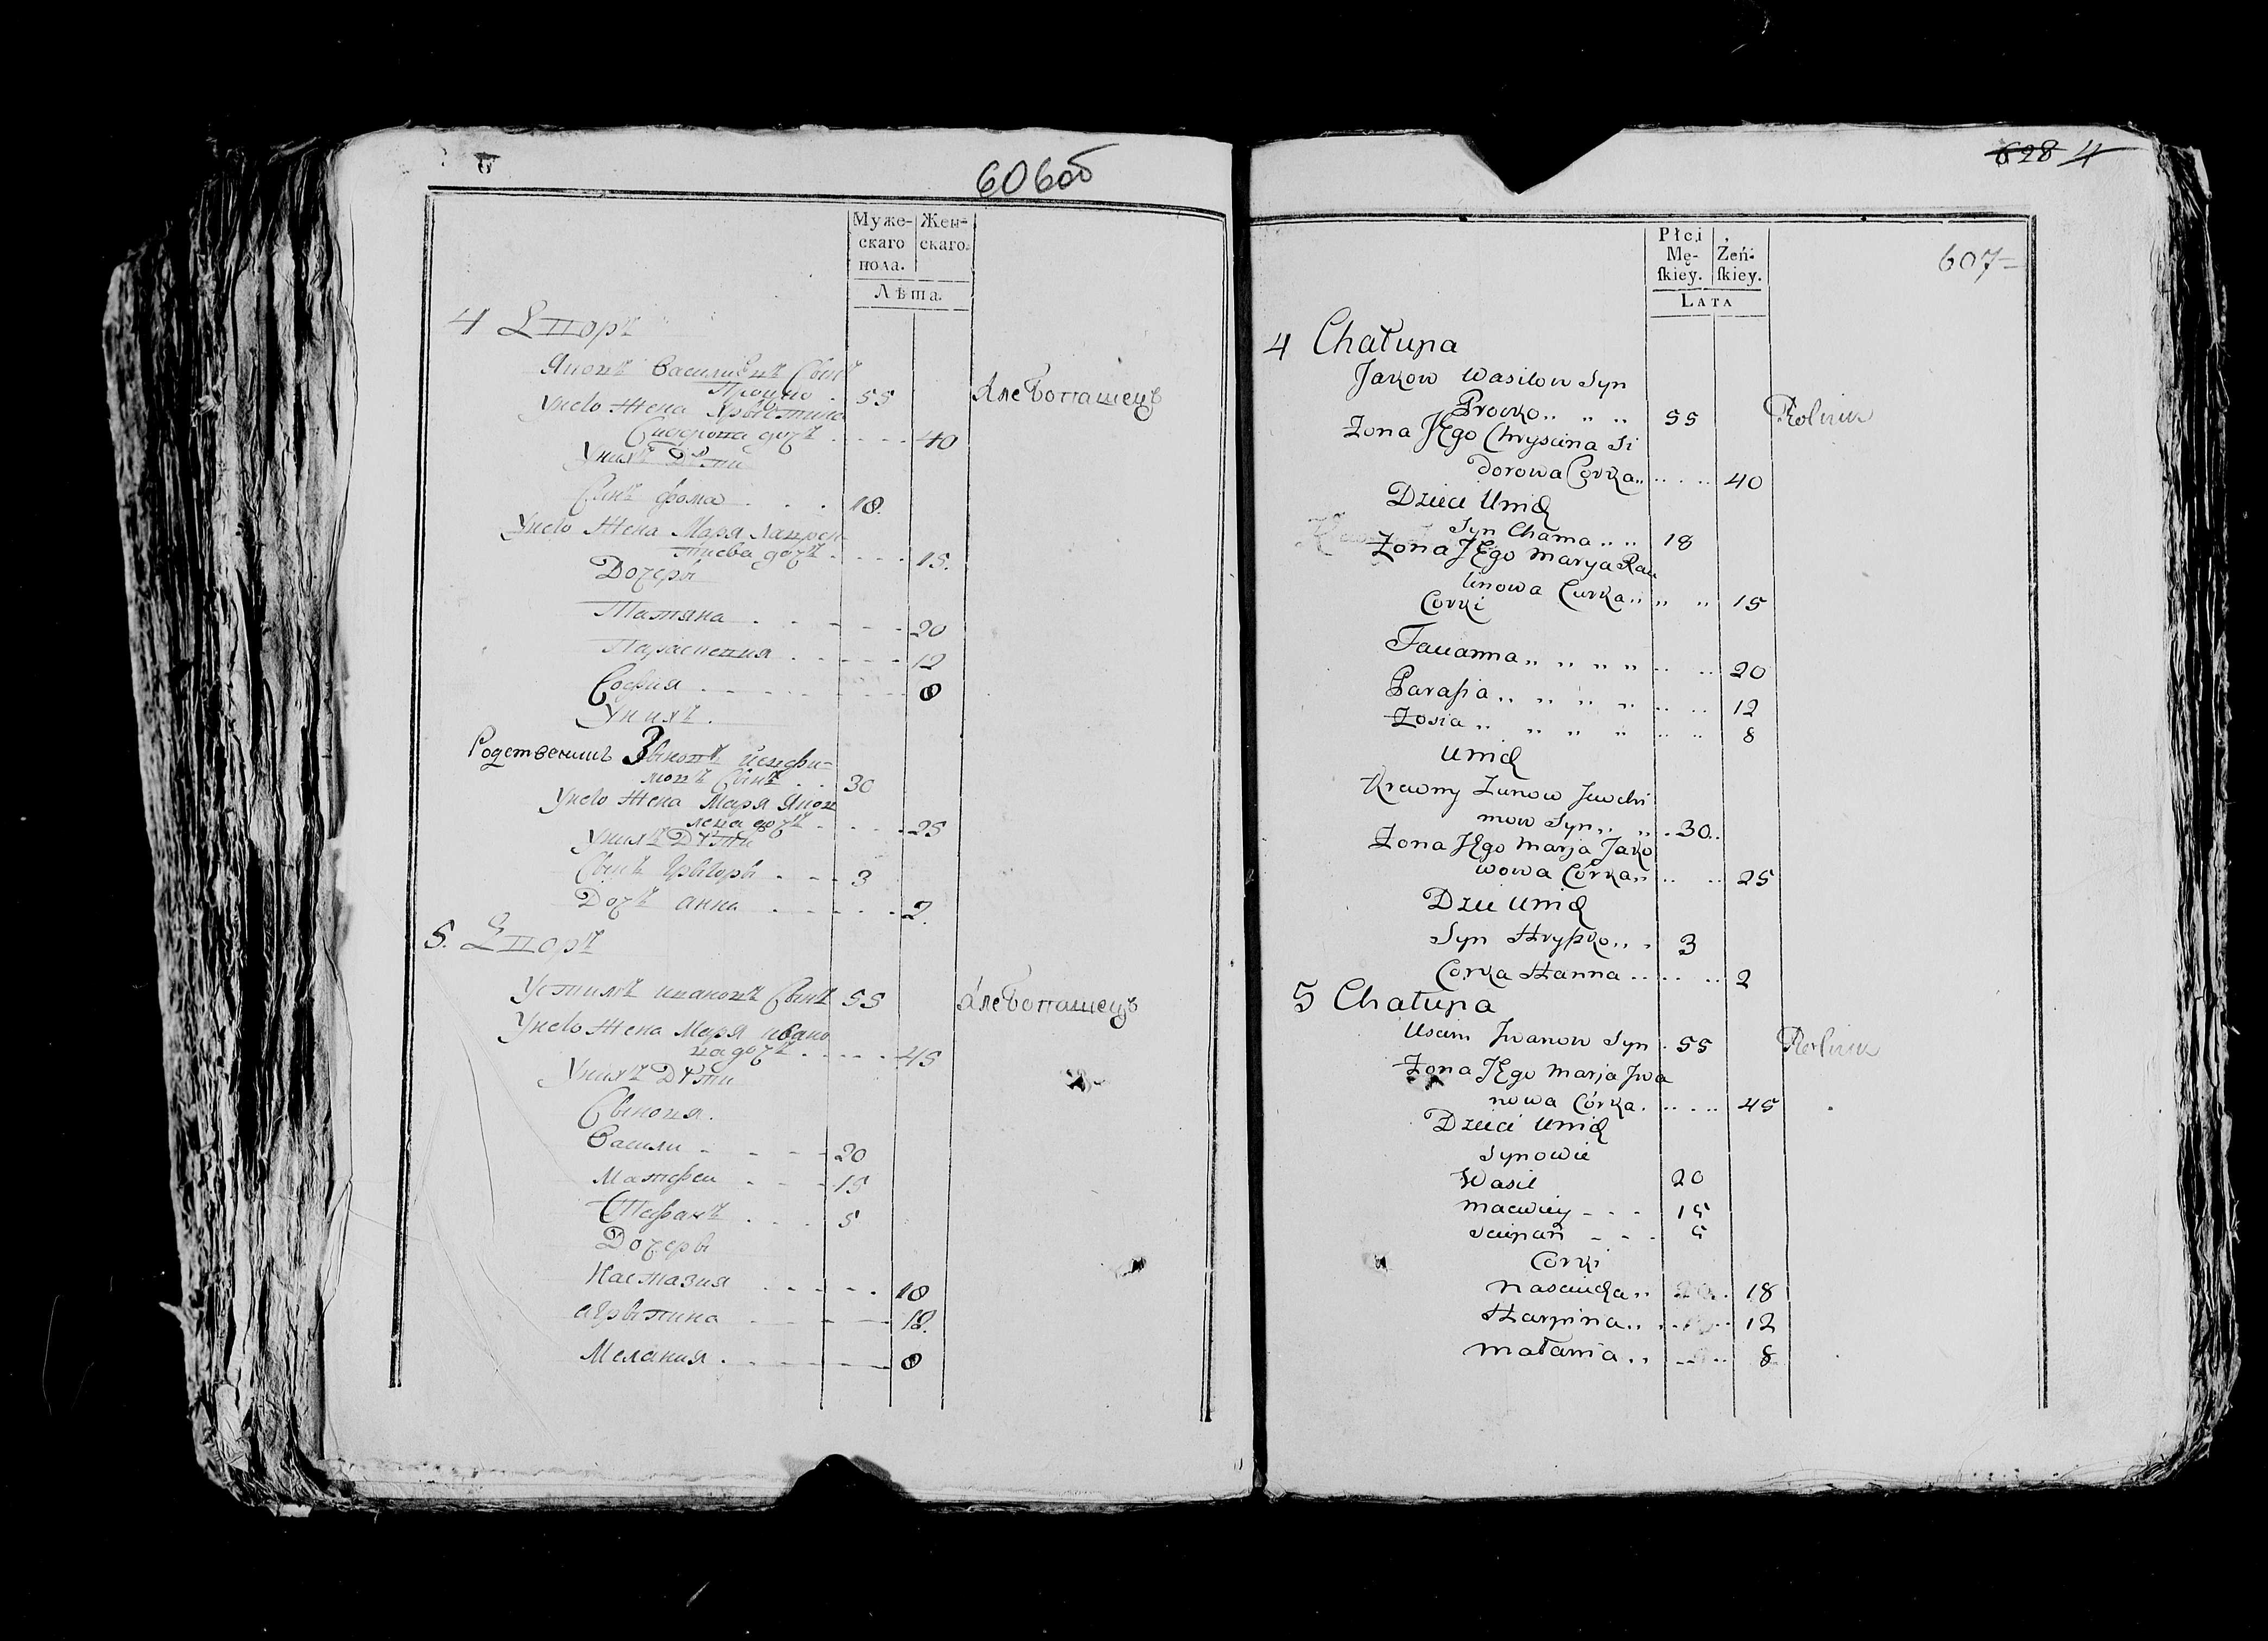 606об
Муже-
скаго
пола.
Жен-
скаго.
Лѣта.
4 Дворъ
Яковъ Василиевъ Сынъ
Процко . 55
Хлебопашецъ
Унево Жена Хрыстина
Сидорова дочъ . . . . 40
Унихъ Дѣти
Сынъ фома . . . 18.
Унево Жена Маря
дочъ . . . . 15.
Дочеры
Татяна . . . . . 20
Парасковия . . . . 12
София . . . . . 8
Унихъ.
Родственикъ
Сынъ . . 30
Унево Жена Маря Яков
лева дочъ . . . . 25
Унихъ Дѣти
Сынъ Грыгоры . . . 3
Дочъ анна . . . . . 2.
5. Дворъ
Устимъ ивановъ Сынъ 55
Хлебопашецъ
Унево Жена Маря ивано
ва дочъ . . . . . 45
Унихъ Дѣти
Сыновя.
Васили . . . . 20
Матфеи . . . 15
Стефанъ . . . 5
Дочеры
Настазия . . . . . 18
агрыпина . . . . 12.
Мелания . . . . . 8
628 4
607
Płci
Mę-
ſkiey.
Żeń-
ſkiey.
LATA
4 Chałupa
Jakow Wasilow Syn
Procko „ „ „ 55
Rolnik
Zona JEgo Chryscina Si
dorowa Corka „ .. .. 40
Dzieci Unich
Syn Chama „ „ 18
Zona JEgo Marya
Curka „ „ „ 15
Corki
Tacianna „ „ „ „ .. .. 20
Paraſia „ „ „ „ .. .. 12
Zosia „ „ „ „ .. .. 8
Unich
Krewny Zinow Jewchi
mow Syn „ „ . 30..
Zona JEgo Marja Jako
wowa Córka „ .. .. 25
Dzie Unich
Syn Hryſzko „ . 3
Corka Hanna .. .. .. 2
5 Chałupa
Uscim Jwanow Syn . 55
Rolnik
Zona JEgo Marja Jwa
nowa Córka . .. .. .. 45
Dzieci Unich
Synowie
Wasil 20
Maciwiey - - - 15
Sciepan - - - 5
Corki
Nasciucha „ .. 18
Harpina „ .. 12
Małania „ .. 8